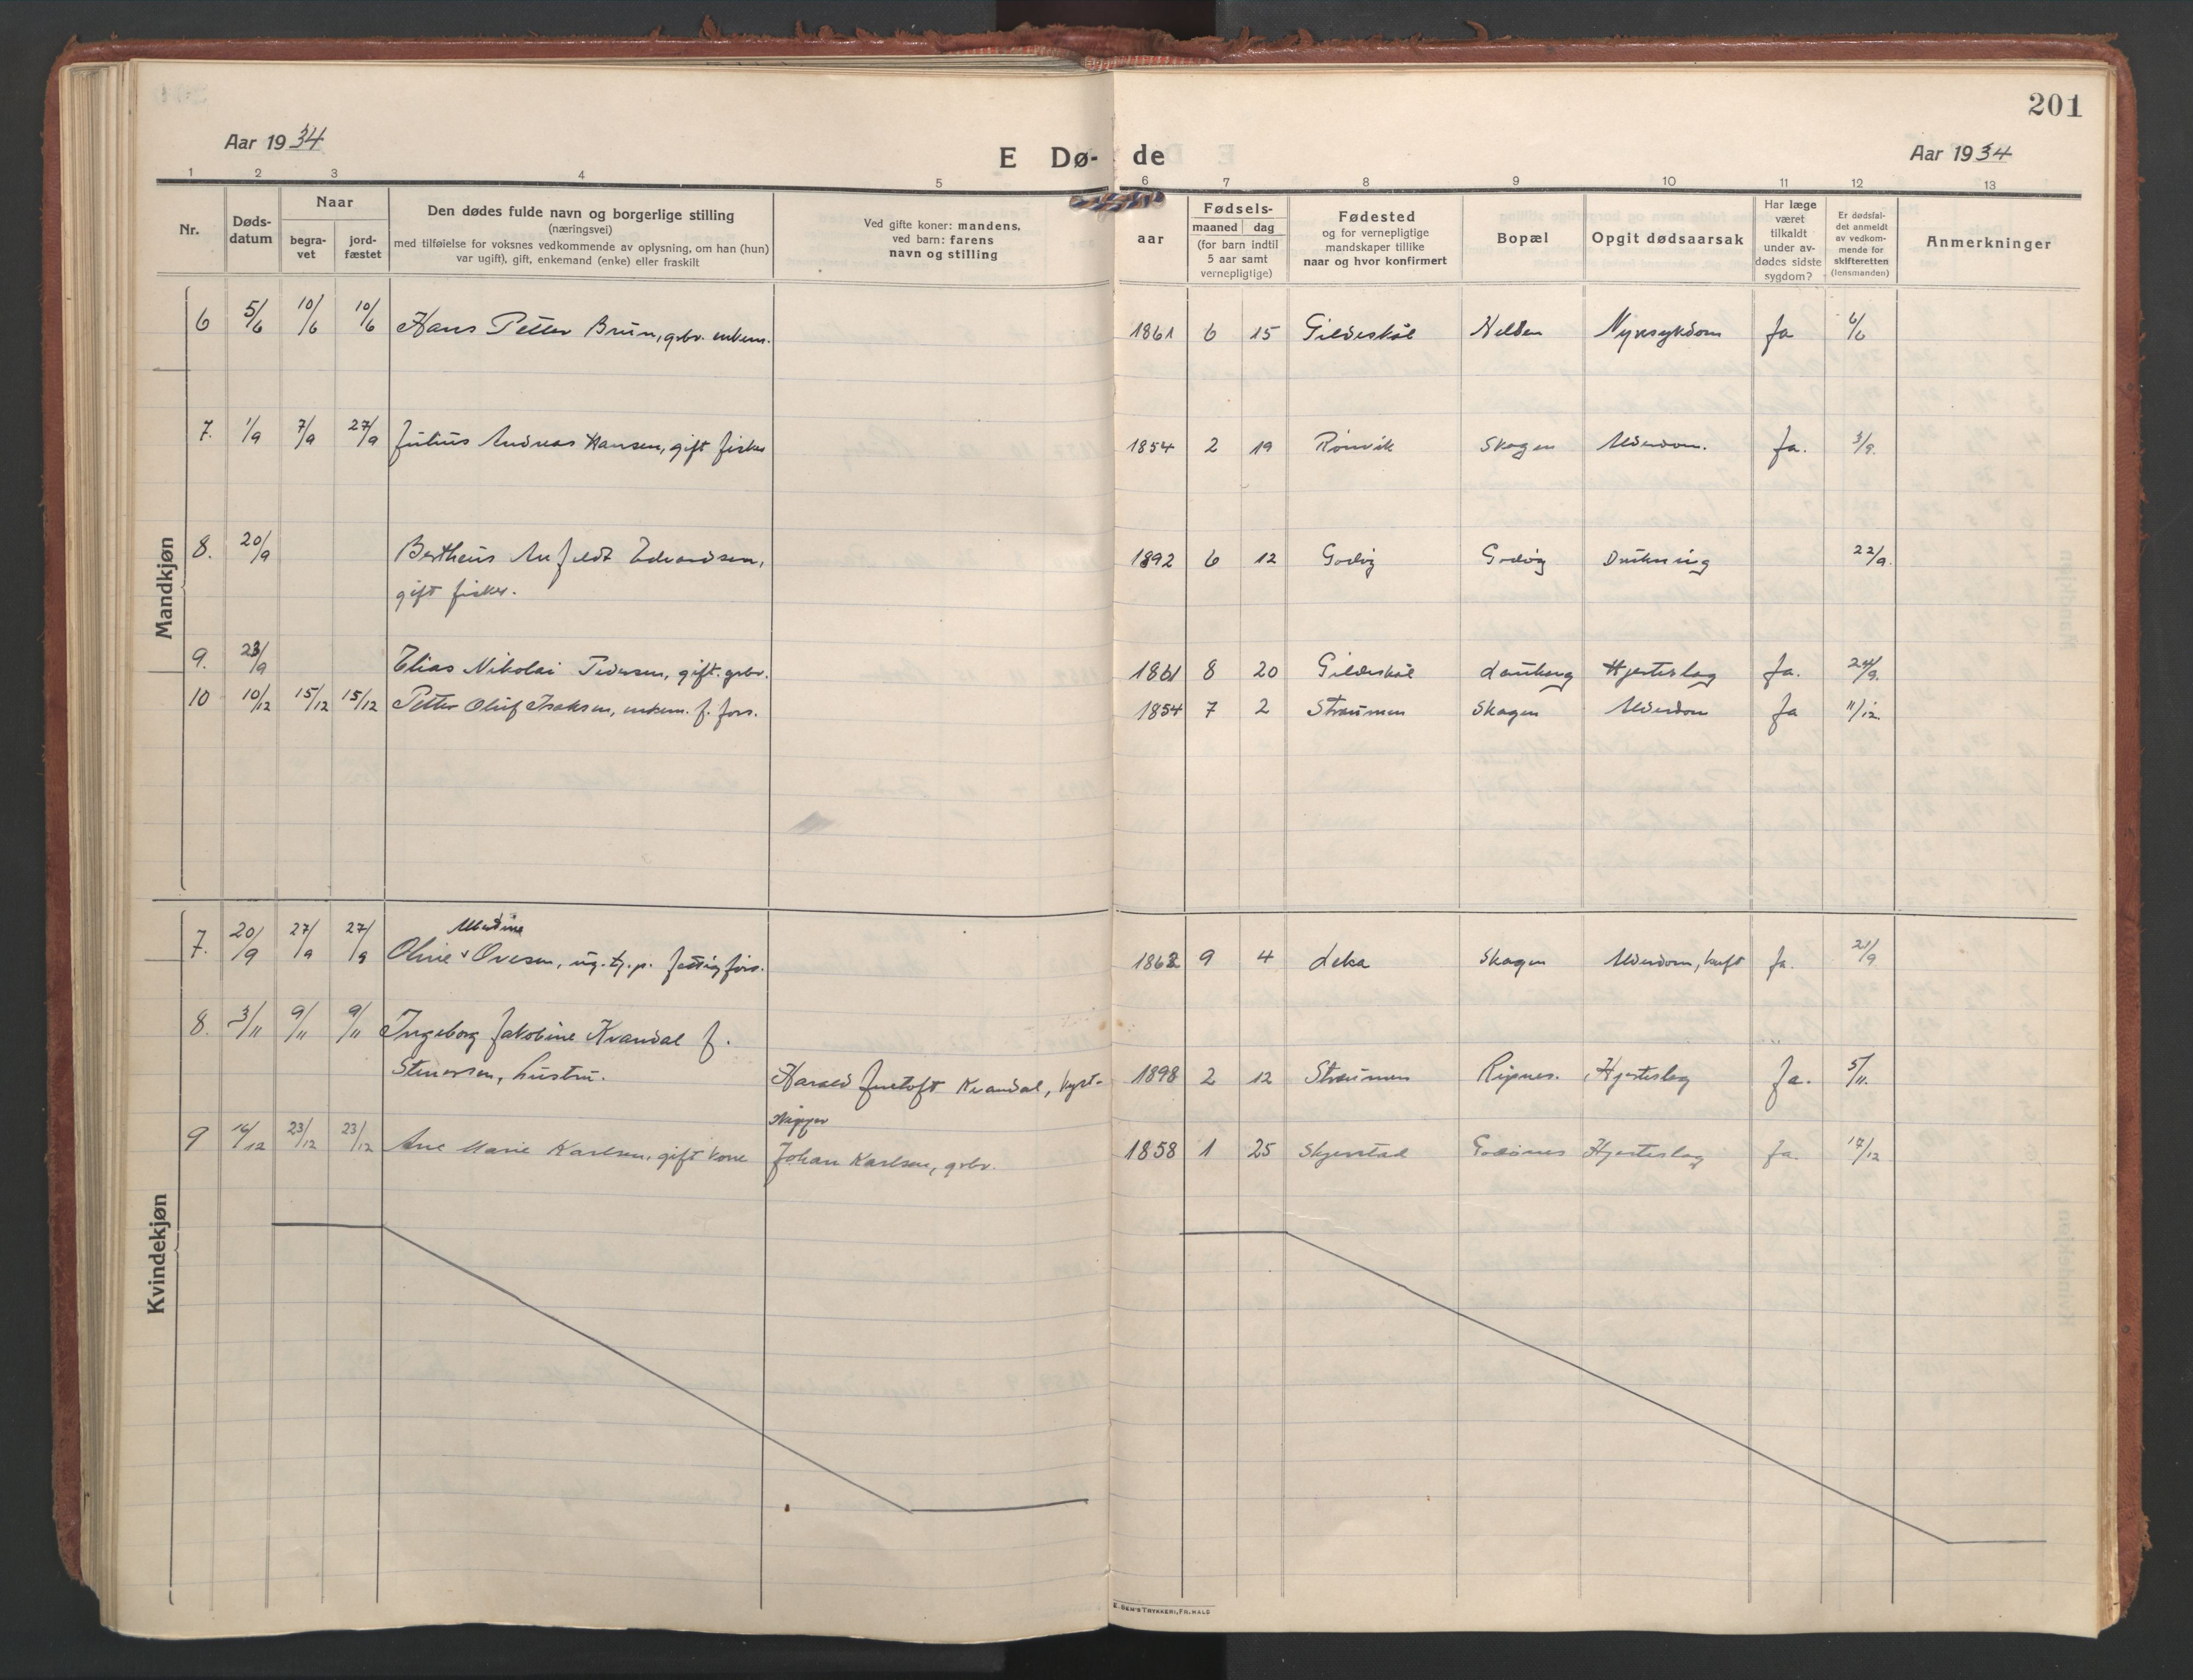 201
Aar 1934
E Dø- de
Aar 1934
1 2 3 4 5 6 7 8 9 10 11 12 13
Nr.
Døds-
datum
Naar
begra-
vet
jord-
fæstet
Den dødes fulde navn og borgerlige stilling
(næringsvei)
med tilføielse for voksnes vedkommende av oplysning, om han (hun)
var ugift), gift, enkemand (enke) eller fraskilt
Ved gifte koner: mandens,
ved barn: farens
navn og stilling
aar
Fødsels-
maaned dag
(for barn indtil
5 aar samt
vernepligtige)
Fødested
og for vernepligtige
mandskaper tillike
naar og hvor konfirmert
Bopæl
Opgit dødsaarsak
Har læge
været
tilkaldt
under av-
dødes sidste
sygdom?
Er dødsfal-
det anmeldt
av vedkom-
mende for
skifteretten
(lensmanden)
Anmerkninger
Mandkjøn
6 5/6 10/6 10/6 Hans Petter Brun, grbr. enkem. 1861 6 15 Gildeskål Nyresykdom Ja 6/6
7. 1/9 7/9 27/9 Julius Andreas Hansen, gift fisker 1854 2 19 Rønvik Skagen Alderdom. Ja. 3/9.
8. 20/9 Bertheus Edvardsen, 1892 6 12 Godøy Godøy Drukning 22/9.
gift fisker.
9. 23/9 Elias Nikolai Pedersen, gift. grbr. 1861 8 20 Gildeskål Hjerteslag Ja. 24/9.
10 10/12 15/12 15/12 Petter Oluf Isaksen, enkem. f. fors. 1854 7 2 Straumen Skagen Alderdom Ja 11/12.
Kvindekjøn
Albertine
7. 20/9 27/9 27/9 Oline Ovesen, ug. tj. p. fattigfors. 1862 9 4 Leka Skagen Alderdom, Ja. 21/9
8. 3/11 9/11 9/11 Ingeborg Jakobine Kvandal f.
Stenersen, hustru. Harald Juetoft Kvandal, kyst- 1898 2 12 Straumen Ripnes. Hjerteslag Ja. 5/11.
skipper
9 16/12 23/12 23/12 Ane Marie Karlsen, gift kone Johan Karlsen, grbr. 1858 1 25 Skjerstad Godønes Hjerteslag Ja. 17/12
E. SEM'S TRYKKERI, FR.HALD